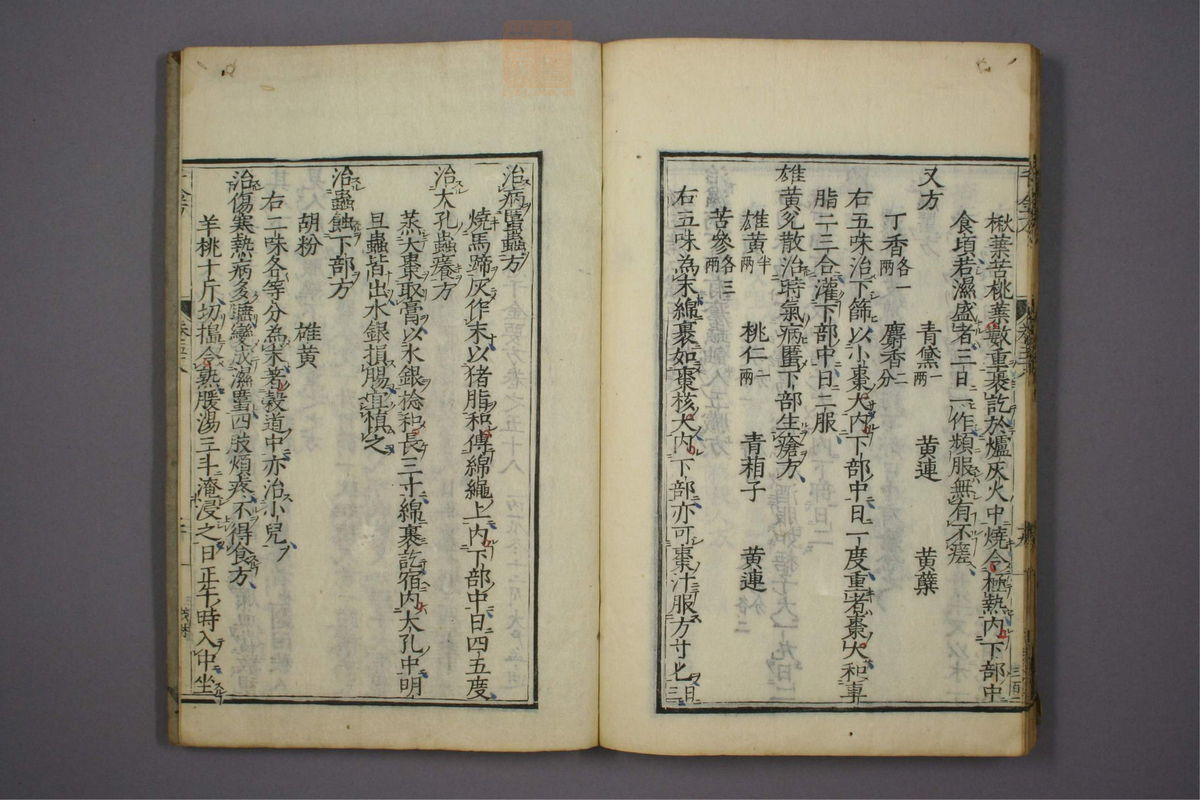 楸葉苦桃葉數重裹訖於爐灰火中燒令極熱内下部中
食頃若濕盛者三日一作頻服無有不瘥
又方
丁香各一兩 青黛一兩 黄連 黄蘗
麝香二分
右五味治下篩以小棗大内下部中日一度重者棗大和車
脂二三合灌下部中日二服
雄黄兊散治時氣病䘌下部生瘡方
雄黄半兩 桃仁一兩 青葙子 黄連
苦參各三兩
右五味為末綿裹如棗核大内下部亦可棗汁服方寸匕日三
治病䘌蟲方
燒馬蹄灰作末以猪脂和傅綿繩上内下部中日四五度
治大孔蟲癢方
蒸大棗取膏以水銀捻和長三寸綿裹訖宿内大孔中明
旦蟲皆出水銀損腸宜慎之
治蟲蝕下部方
胡粉 雄黄
右二味各等分為末著穀道中亦治小兒
治傷寒熱病多㿃變成濕䘌四肢煩疼不得食方
羊桃十斤切搵令熟暖湯三斗淹浸之日正午時入中坐